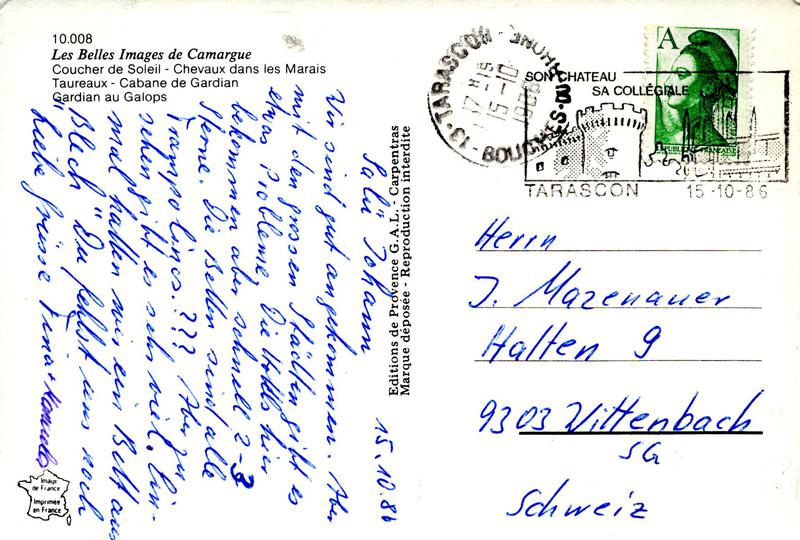 10.008
Les Belles Images de Camargue
Coucher de Soleil - Chevaux dans les Marais
Taureaux - Cabane de Gardian
Gardian au Galops
Salü Johann 15.10.86
Wir sind gut angekommen. Aber
mit den grossen Städten gibt es
etwas Probleme. Die Hotels hier
bekommen aber schnell 2-3
Sterne. Die Betten sind alle
Trampolines. ??? Aber zu
sehen gibt es sehr viel. Ein-
mal hatten wir ein Bett aus
Blech" Du fehlst uns noch
Liebe Grüsse Tina +
Editions de Provence G.A.L. - Carpentras
Marque déposée - Reproduction interdite
Image
de France
Imprimée
en France
13 - TARASCON
17 H 15
15-10
1986
BOUCHES-DU-RHONE
SON CHATEAU
SA COLLÉGIALE
TARASCON 15-10-86
A
REPUBLIQUE FRANÇAISE
Herrn
J. Mazenauer
Halten 9
9303 Wittenbach
SG
Schweiz